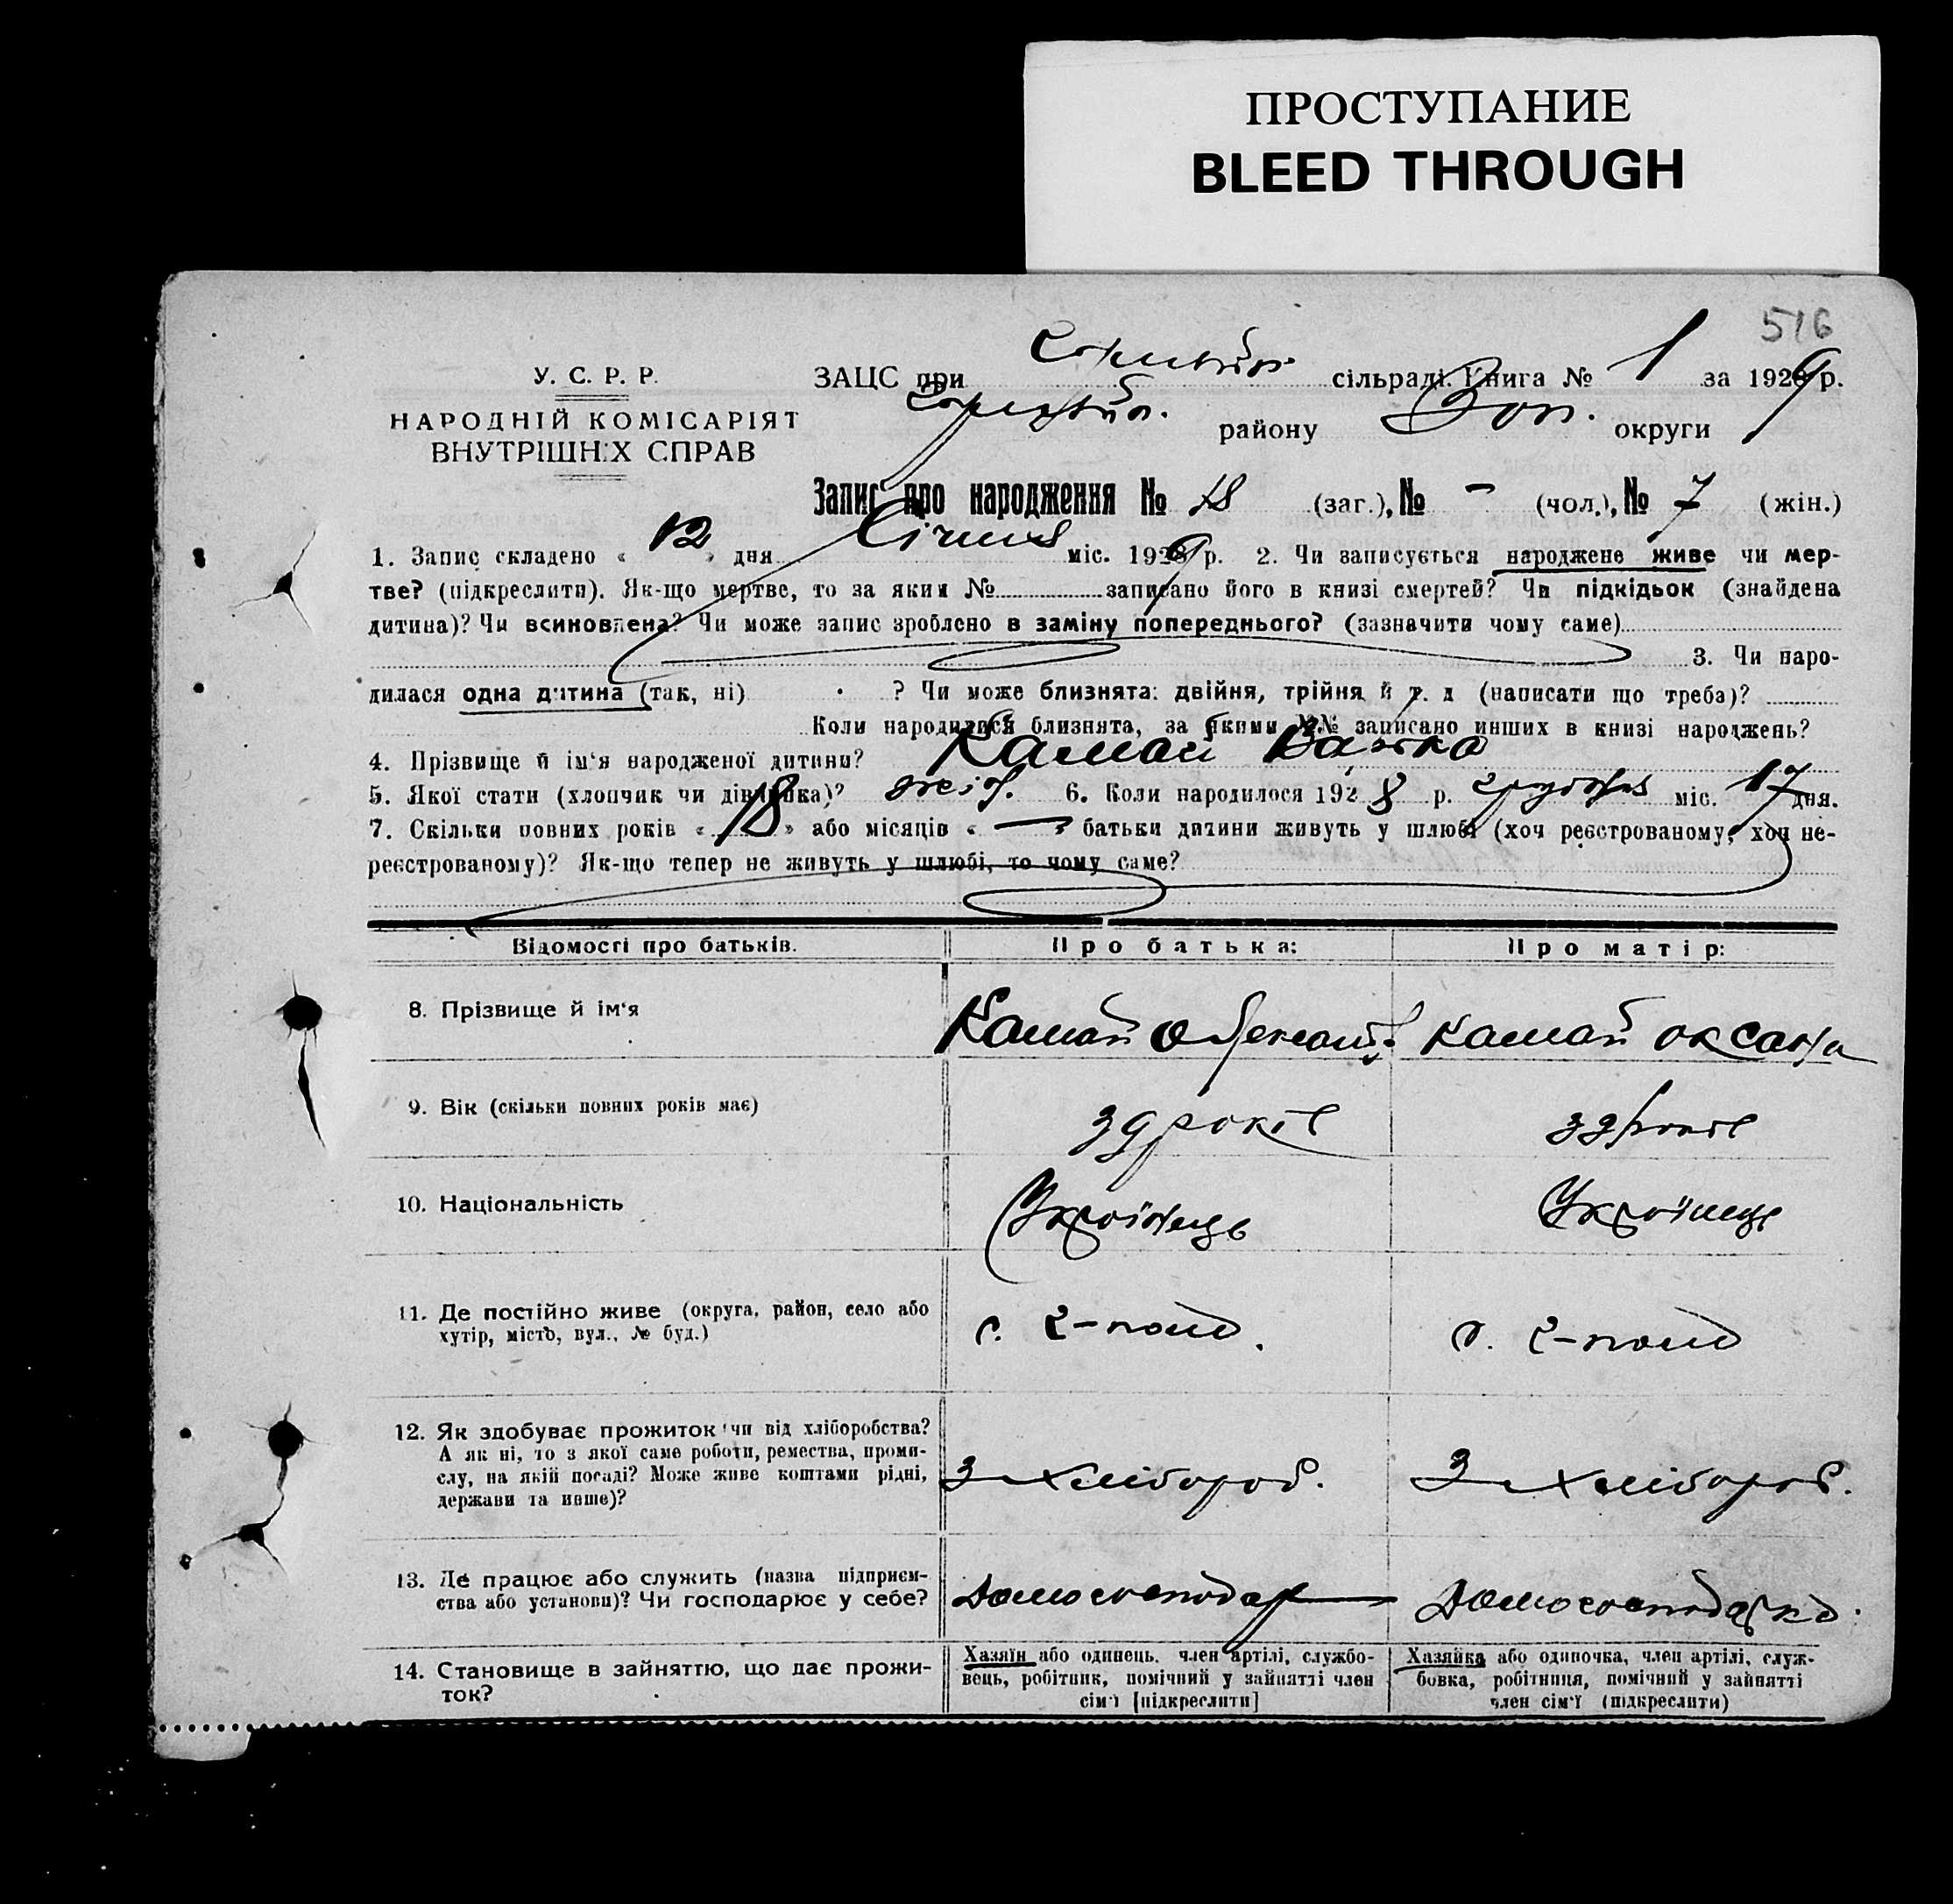 ПРОСТУПАНИЕ
BLEED THROUGH
516
У. С. Р. Р.
НАРОДНІЙ КОМІСАРІЯТ
ВНУТРІШНІХ СПРАВ
ЗАЦС при сільраді. Книга № 1 за 1929 р.
району Зап. округи
Запис про народження № 18 (заг.), № – (чол.), № 7 (жін.)
1. Запис складено « 12 » дня Січня міс. 1929 р. 2. Чи записується народжене живе чи мер-
тве? (підкреслити). Як-що мертве, то за яким № записано його в книзі смертей? Чи підкідьок (знайдена
дитина)? Чи всиновлена? Чи може запис зроблено в заміну попереднього? (зазначити чому саме)
3. Чи наро-
дилася одна дитина (так, ні) ? Чи може близнята: двійня, трійня й т. д (написати що треба)?
Коли народилися близнята, за якими №№ записано инших в книзі народжень?
4. Прізвище й ім'я народженої дитини? Камай
5. Якої стати (хлопчик чи дівчинка)? жін. 6. Коли народилося 1928 р. грудня міс. 17 дня.
7. Скільки повних років « 18 » або місяців « — » батьки дитини живуть у шлюбі (хоч реєстрованому, хоч не-
реєстрованому)? Як-що тепер не живуть у шлюбі, то чому саме?
Відомості про батьків. Про батька: Про матір:
8. Прізвище й ім'я Камай Олександ. Камай Оксана
9. Вік (скільки повних років має) 39 років 39 років
10. Національність Українець Українець
11. Де постійно живе (округа, район, село або
хутір, місто, вул., № буд.) с. Г-поле с. Г-поле
12. Як здобуває прожиток (чи від хліборобства?
А як ні, то з якої саме роботи, ремества, проми-
слу, на якій посаді? Може живе коштами рідні,
держави та инше)? З хлібороб. З хлібороб.
13. Де працює або служить (назва підприєм-
ства або установи)? Чи господарює у себе? Домогосподар Домогосподарка
14. Становище в зайняттю, що дає прожи-
ток?
Хазяїн або одинець, член артілі, службо-
вець, робітник, помічний у зайнятті член
сім'ї [підкреслити]
Хазяйка або одиночка, член артілі, служ-
бовка, робітниця, помічний у зайнятті
член сім'ї (підкреслити)